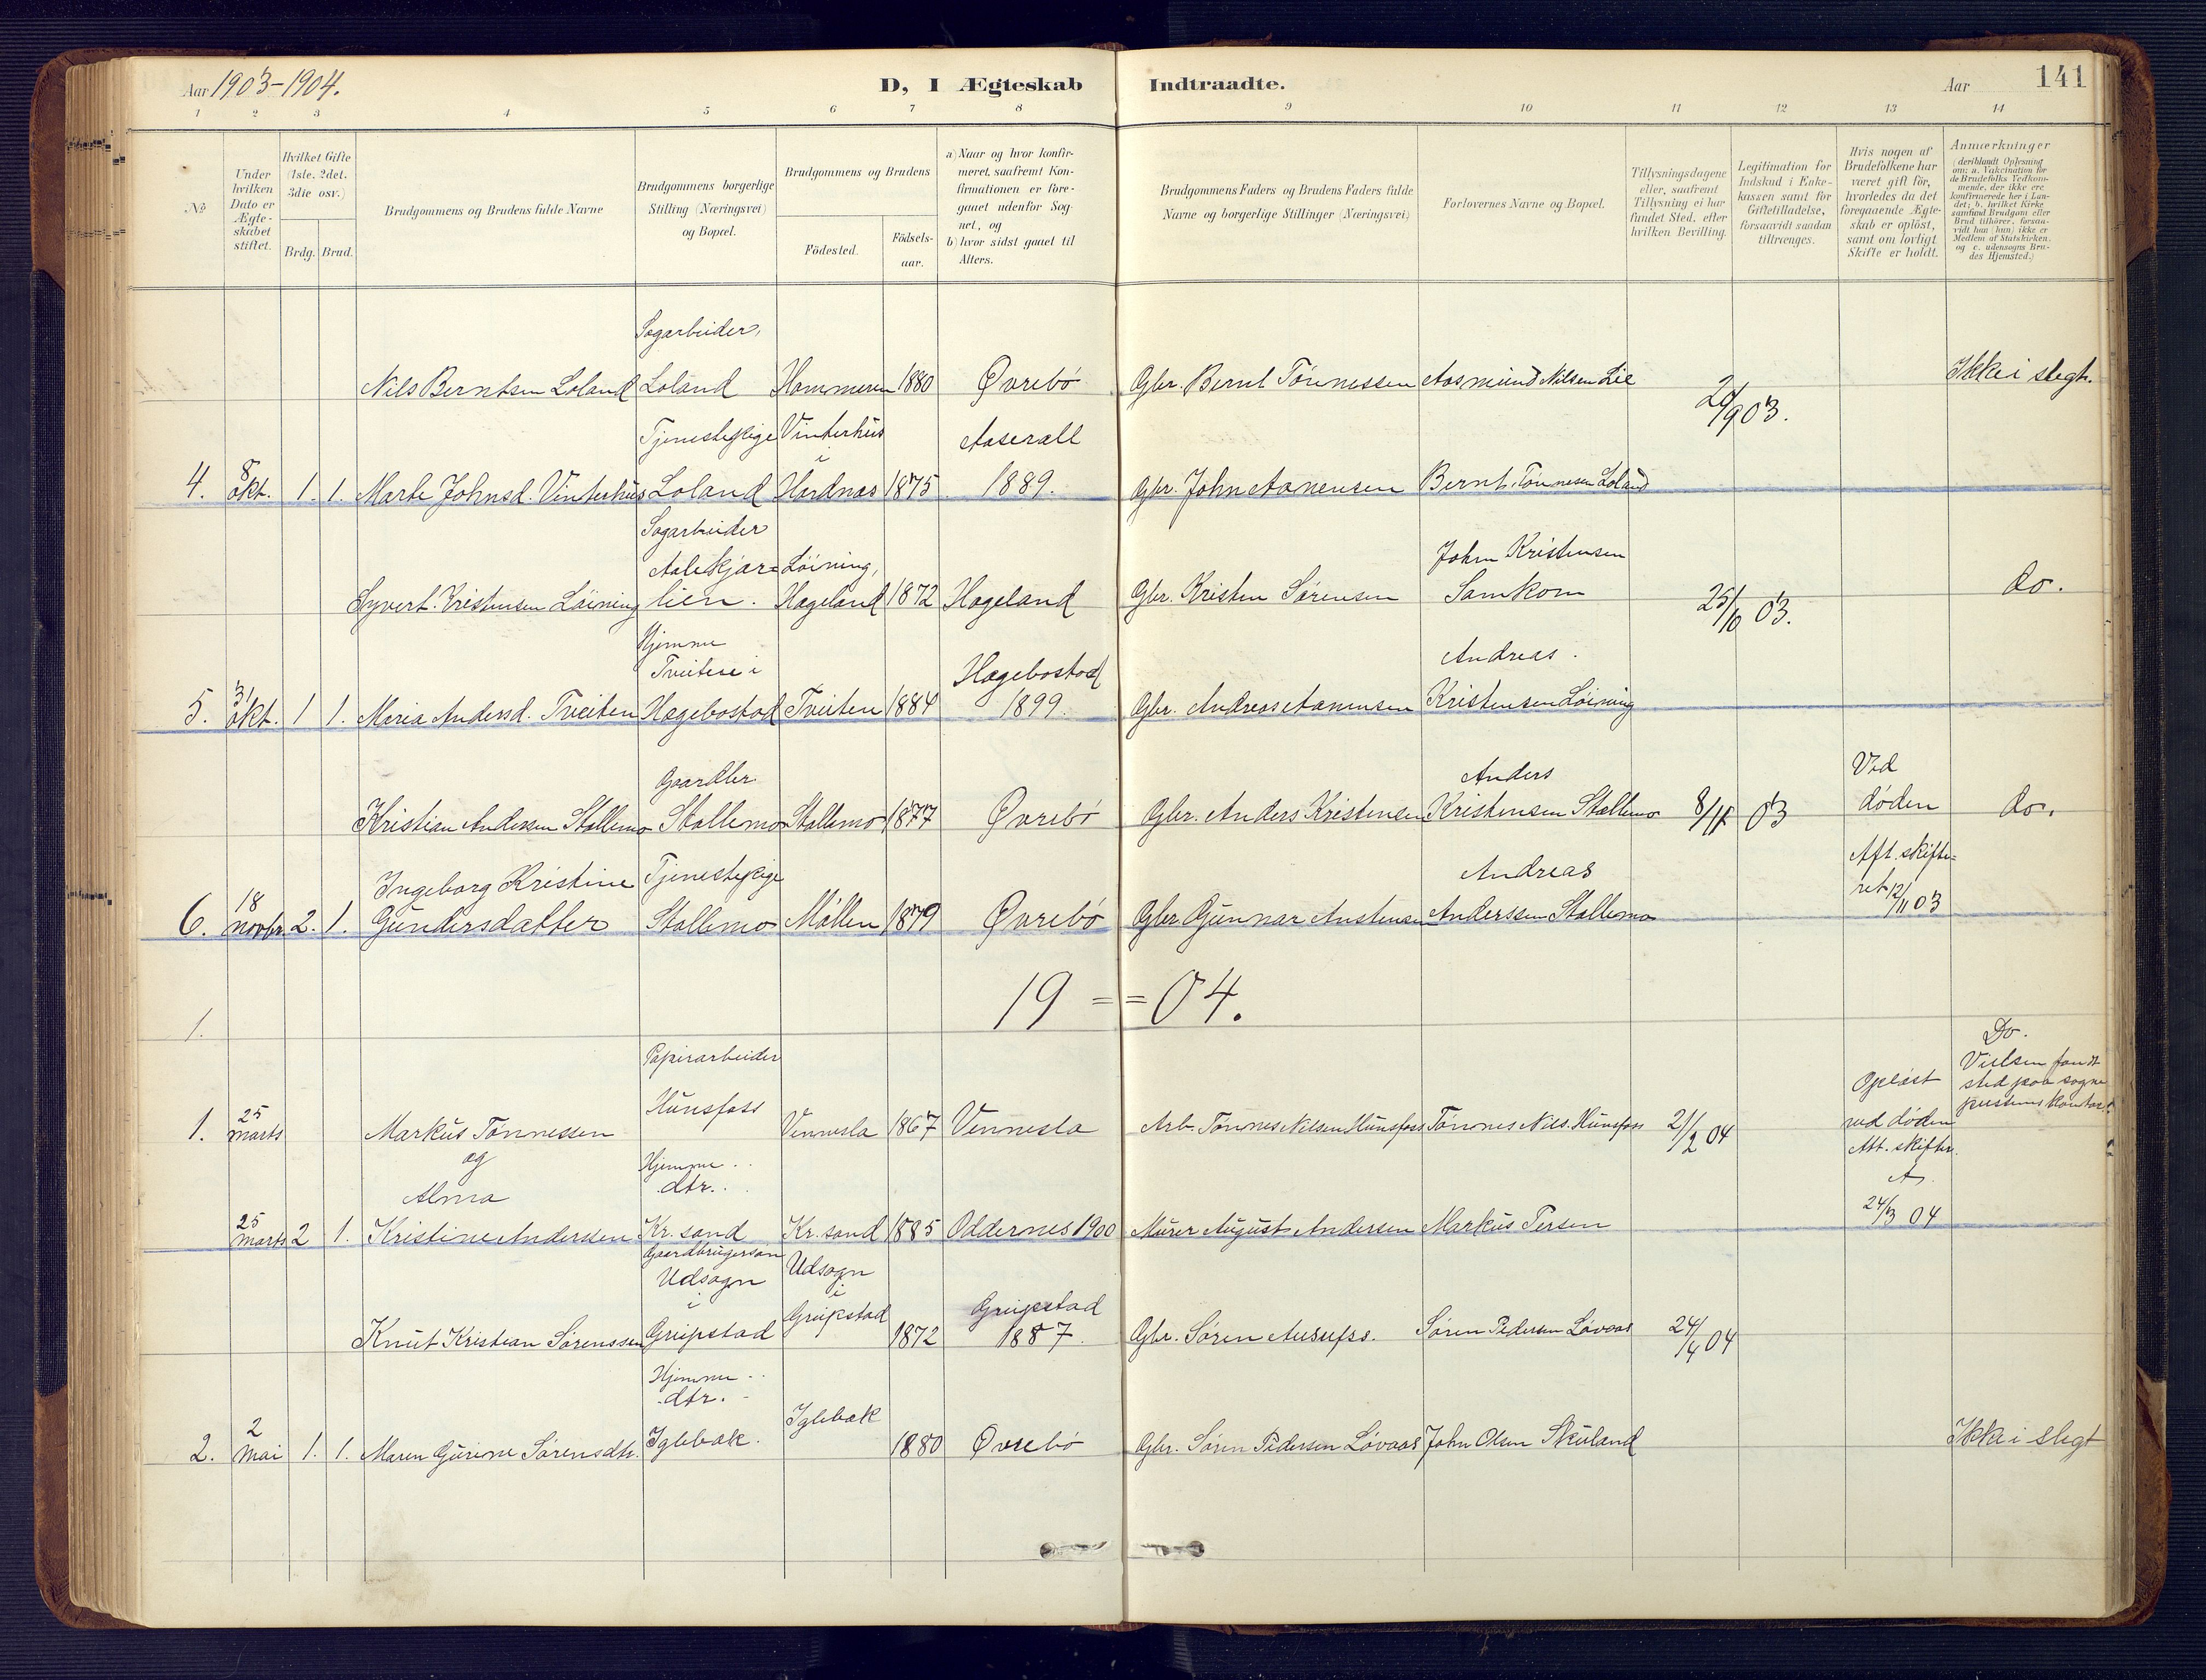 Aar 1903-1904.
D, I Ægteskab Indtraadte.
Aar 141
1 2 3 4 5 6 7 8 9 10 11 12 13 14
No
Under hvilken Dato er Ægteskabet stiftet.
Hvilket Gifte (1ste. 2det. 3die osv.)
Brdg. Brud.
Brudgommens og Brudens fulde Navne
Brudgommens borgerlige Stilling (Næringsvei) og Bopæl.
Brudgommens og Brudens
Födested.
Födselsaar.
a) Naar og hvor konfirmeret, saafremt Konfirmationen er foregaaet udenfor Sognet, og
b) hvor sidst gaaet til Alters.
Brudgommens Faders og Brudens Faders fulde Navne og borgerlige Stillinger (Næringsvei)
Forlovernes Navne og Bopæl.
Tillysningsdagene eller, saafremt Tillysning ei har fundet Sted, efter hvilken Bevilling.
Legitimation for Indskud i Enkekassen samt for Giftetilladelse, forsaavidt saadan tiltrænges.
Hvis nogen af Brudefolkene har været gift för, hvorledes da det foregaaende Ægteskab er oplöst, samt om lovligt Skifte er holdt.
Anmærkninger
(deriblandt Oplysning om: a. Vakcination for de Brudefolks Vedkommende, der ikke ere konfirmerede her i Landet; b. hvilket Kirkesamfund Brudgom eller Brud tilhörer, forsaavidt han (hun) ikke er Medlem af Statskirken, og c. udensogns Brudes Hjemsted.)
Sagarbeider,
Nils Berntsen Loland Loland Hommeren 1880 Øvrebö Gbr. Bernt Tönnessen Aasmund Nilsen Lie 20/9 03. Ikke i slegt.
Tjenestepige Vinterhus Aaserall
4. 8 okt. 1. 1. Marte Johnsd. Vinterhus Loland i Hordnæs 1875 1889. Gbr. John Aanensen Bernt Tönnesen Loland
Sagarbeider
Aalekjær= Löining, John Kristensen
Syvert Kristensen Löining lien. Hægeland 1872 Hægeland Gbr. Kristen Sørensen Samkom 25/10 03. do.
Hjemme
Tveiten i Hægebostad Andreas
5. 31 okt. 1 1. Maria Andersd. Tveiten Hægebostad Tveiten 1884 1899. Gbr. Andreas Aanensen Kristensen Löining
Gaardbr. Anders Ved
Kristian Andersen Stallemo Stallemo Stallemo 1877 Øvrebö Gbr. Anders Kristensen Kristensen Stallemo 8/11 03 döden do.
Ingeborg Kristine Tjenestepige Andreas Aft. skifte=
6. 18 novbr. 2. 1. Gundersdatter Stallemo Möllen 1879 Øvrebö Gbr. Gunnar Austensen Anderssen Stallemo ret 12/11 03
19 = = 04.
1.
Papirarbeider Do.
Hunsfoss Oplöst Vielsen fandt sted paa sogneprestens kontor.
1. 25 marts Markus Tönnessen Vennesla 1867 Vennesla Arb. Tönnes Nilsen Hunsfoss Tönnes Nils. Hunsfoss 21/2 04 ved döden
og Hjemme- Att. skifter.
Alma dtr.
25 marts 2 1. Kristine Anderssen Kr.sand Kr.sand 1885 Oddernes 1900 Murer August Andersen Markus Tersen 24/3 04
Gaardbrugersøn
Udsogn Udsogn
i i Greipstad
Knut Kristian Sørenssen Greipstad Greipstad 1872 1887. Gbr. Sören Ausufss. Sören Pedersen Lövaas 24/4 04
Hjemme-
dtr.
2. 2 mai 1. 1. Maren Gurine Sörensdtr. Iglebæk. Iglebæk 1880 Øvrebö Gbr. Sören Pedersen Lövaas John Olsen Skuland Ikke i slegt